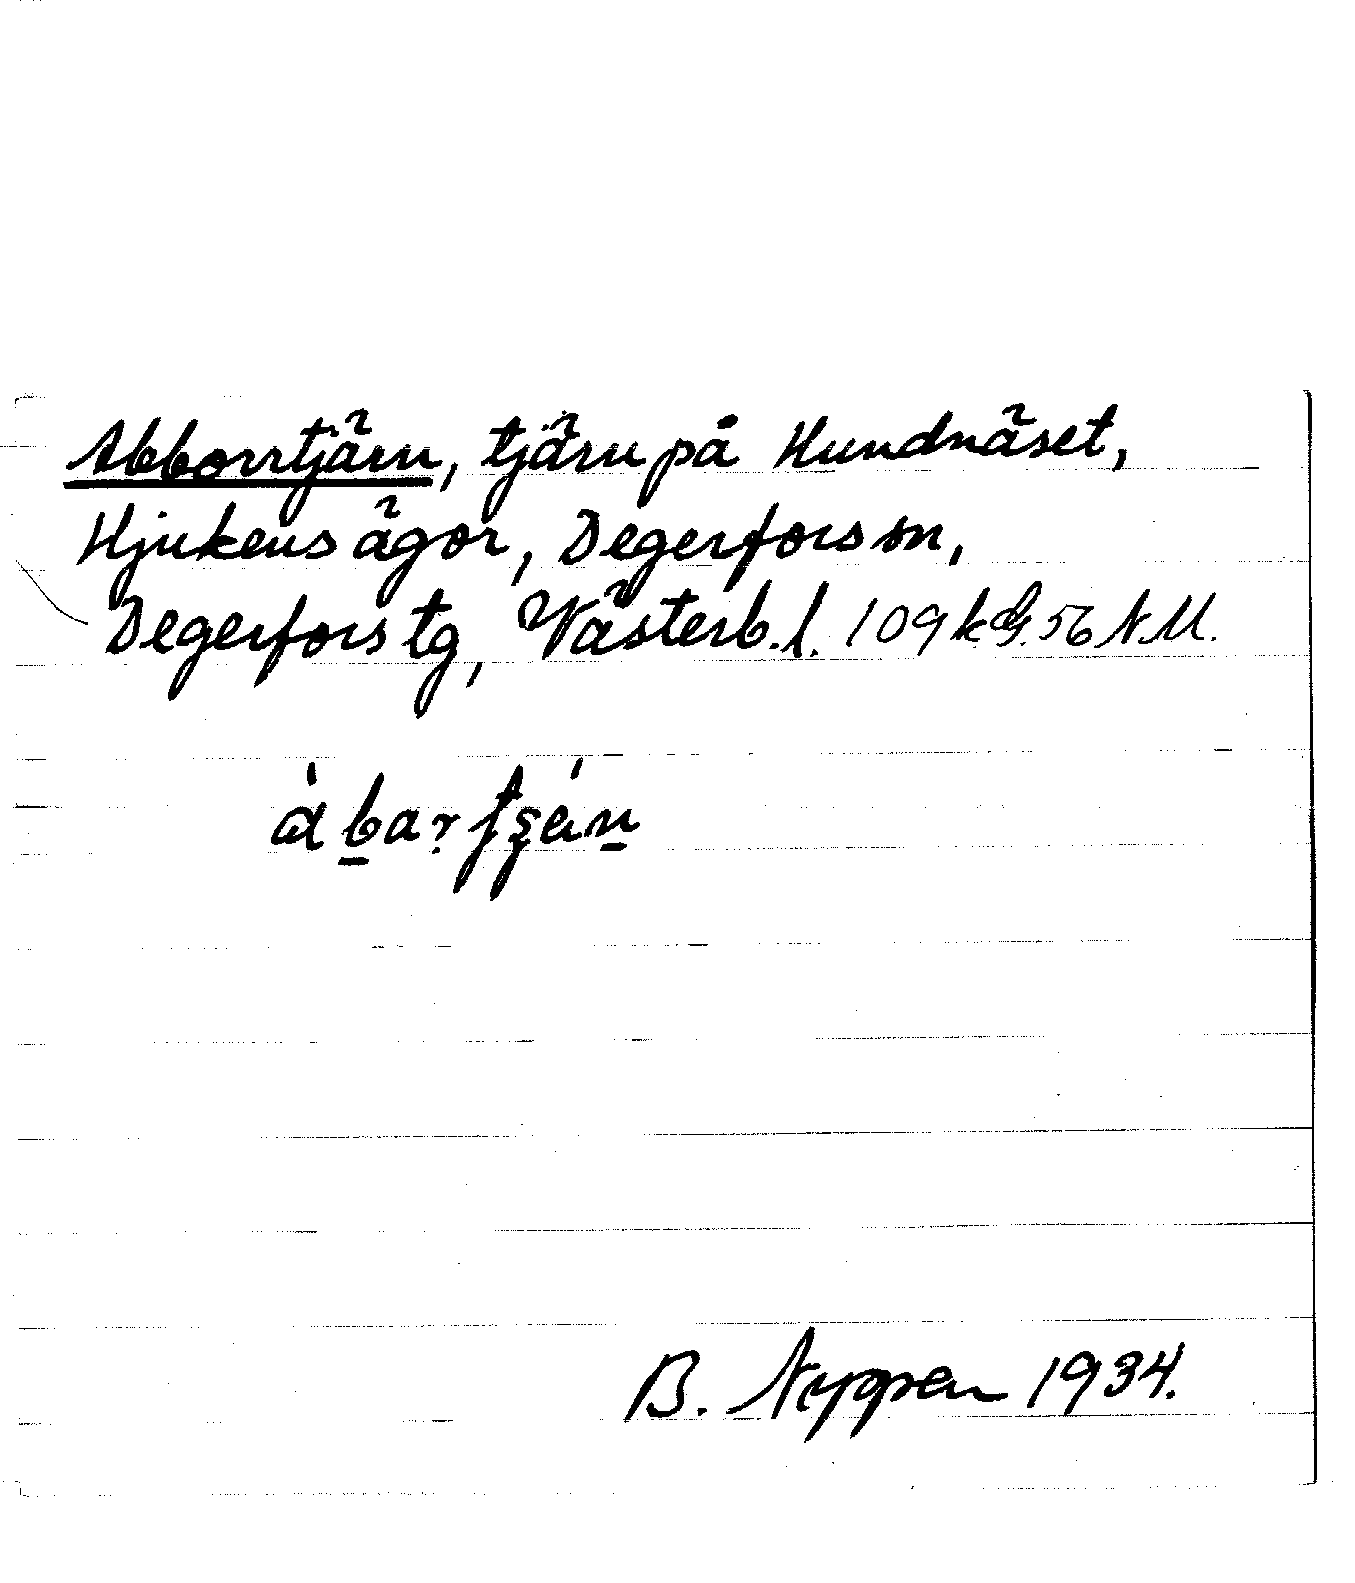 Abborrtjärn, tjärn på Hundnäset,
Hjukens ägor, Degerfors sn,
Degerfors tg, Västerb. l. 109 56 N.M.
B. Nygren 1934.